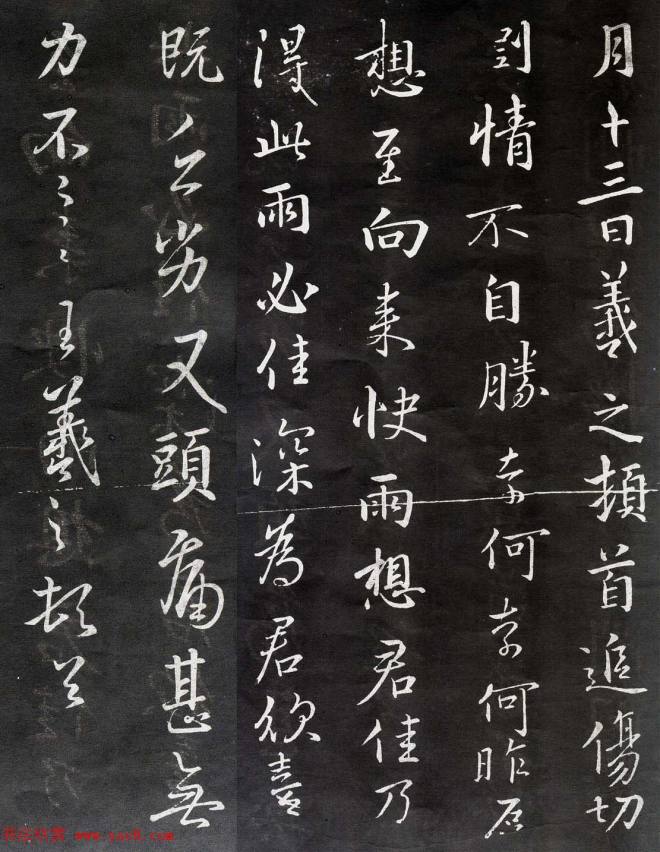 月十三日羲之頓首追傷切
割情不自勝奈何奈何昨
想至向来快雨想君佳乃
得此雨必佳深為君欣喜
劣又頭痛甚無
力不〻王羲之頓首
www.yac8.com